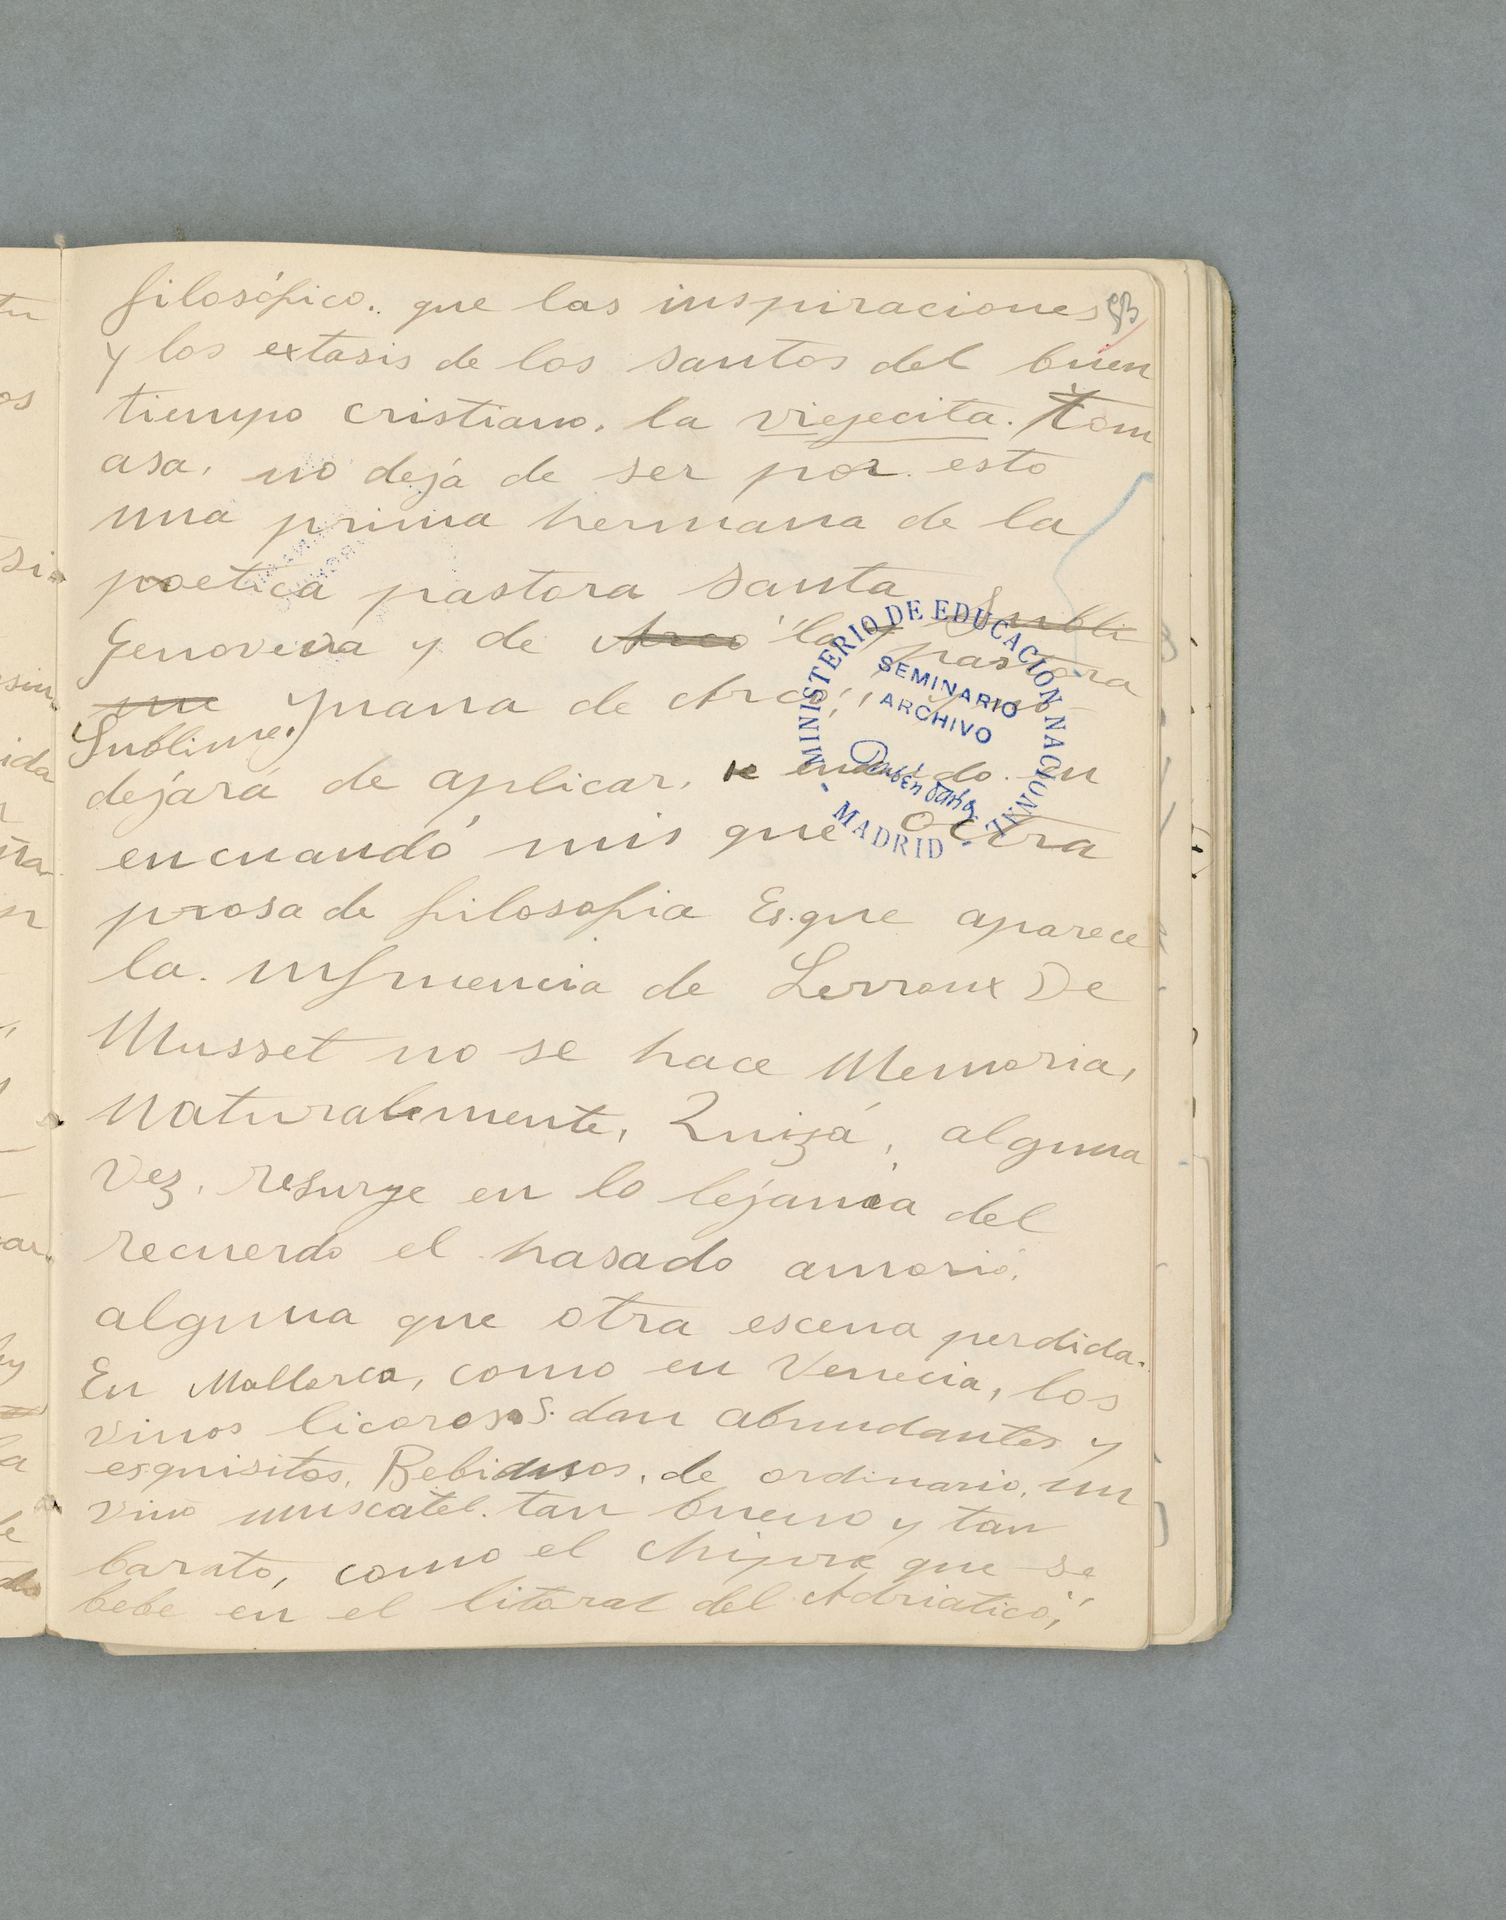 filosófico. que las inspiraciones
y los extasis de los santos del buen
tiempo cristiano. la viejecita. Tom
asa, no deja de ser por esto
una prima hermana de la
poetica pastora Santa
Genoveva y de Arco la pastora Subli
me Juana de Arco; y no
Sublime.
dejará de aplicar. de cuando en
encuando mis que octra
prosa de filosofia Es.que aparece
la. infruencia de Lerroux De
Musset no se hace Memoria,
Naturalemente, Quizá, alguna
vez, resurge en lo lejania del
recuerdo el hasado amorio.
alguna que otra escena perdida.
En Mallorca, como en Venecia, los
vinos licorosos. dan abundantes y
esquisitos. Bebidusos, de ordinario, un
vino muscatel. tan bueno y tan
barato, como el Chipre que se
bebe en el litoral del Adriatico;
MINISTERIO DE EDUCACION NACIONAL
SEMINARIO
ARCHIVO
Rubén Darío
- MADRID -